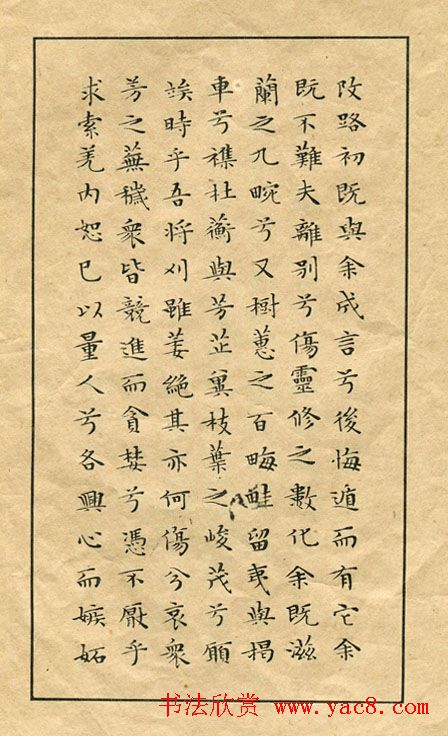 攺路初既與余成言兮後悔遁而有它余
既不難夫離別兮傷靈修之數化余既滋
蘭之九畹兮又樹蕙之百畮畦留夷與揭
車兮襍杜蘅與芳芷冀枝葉之峻茂兮願
竢時乎吾將刈雖萎絶其亦何傷兮哀衆
芳之蕪穢衆皆競進而貪婪兮憑不厭乎
求索羌內恕己以量人兮各興心而嫉妬
书法欣赏 www.yac8.com